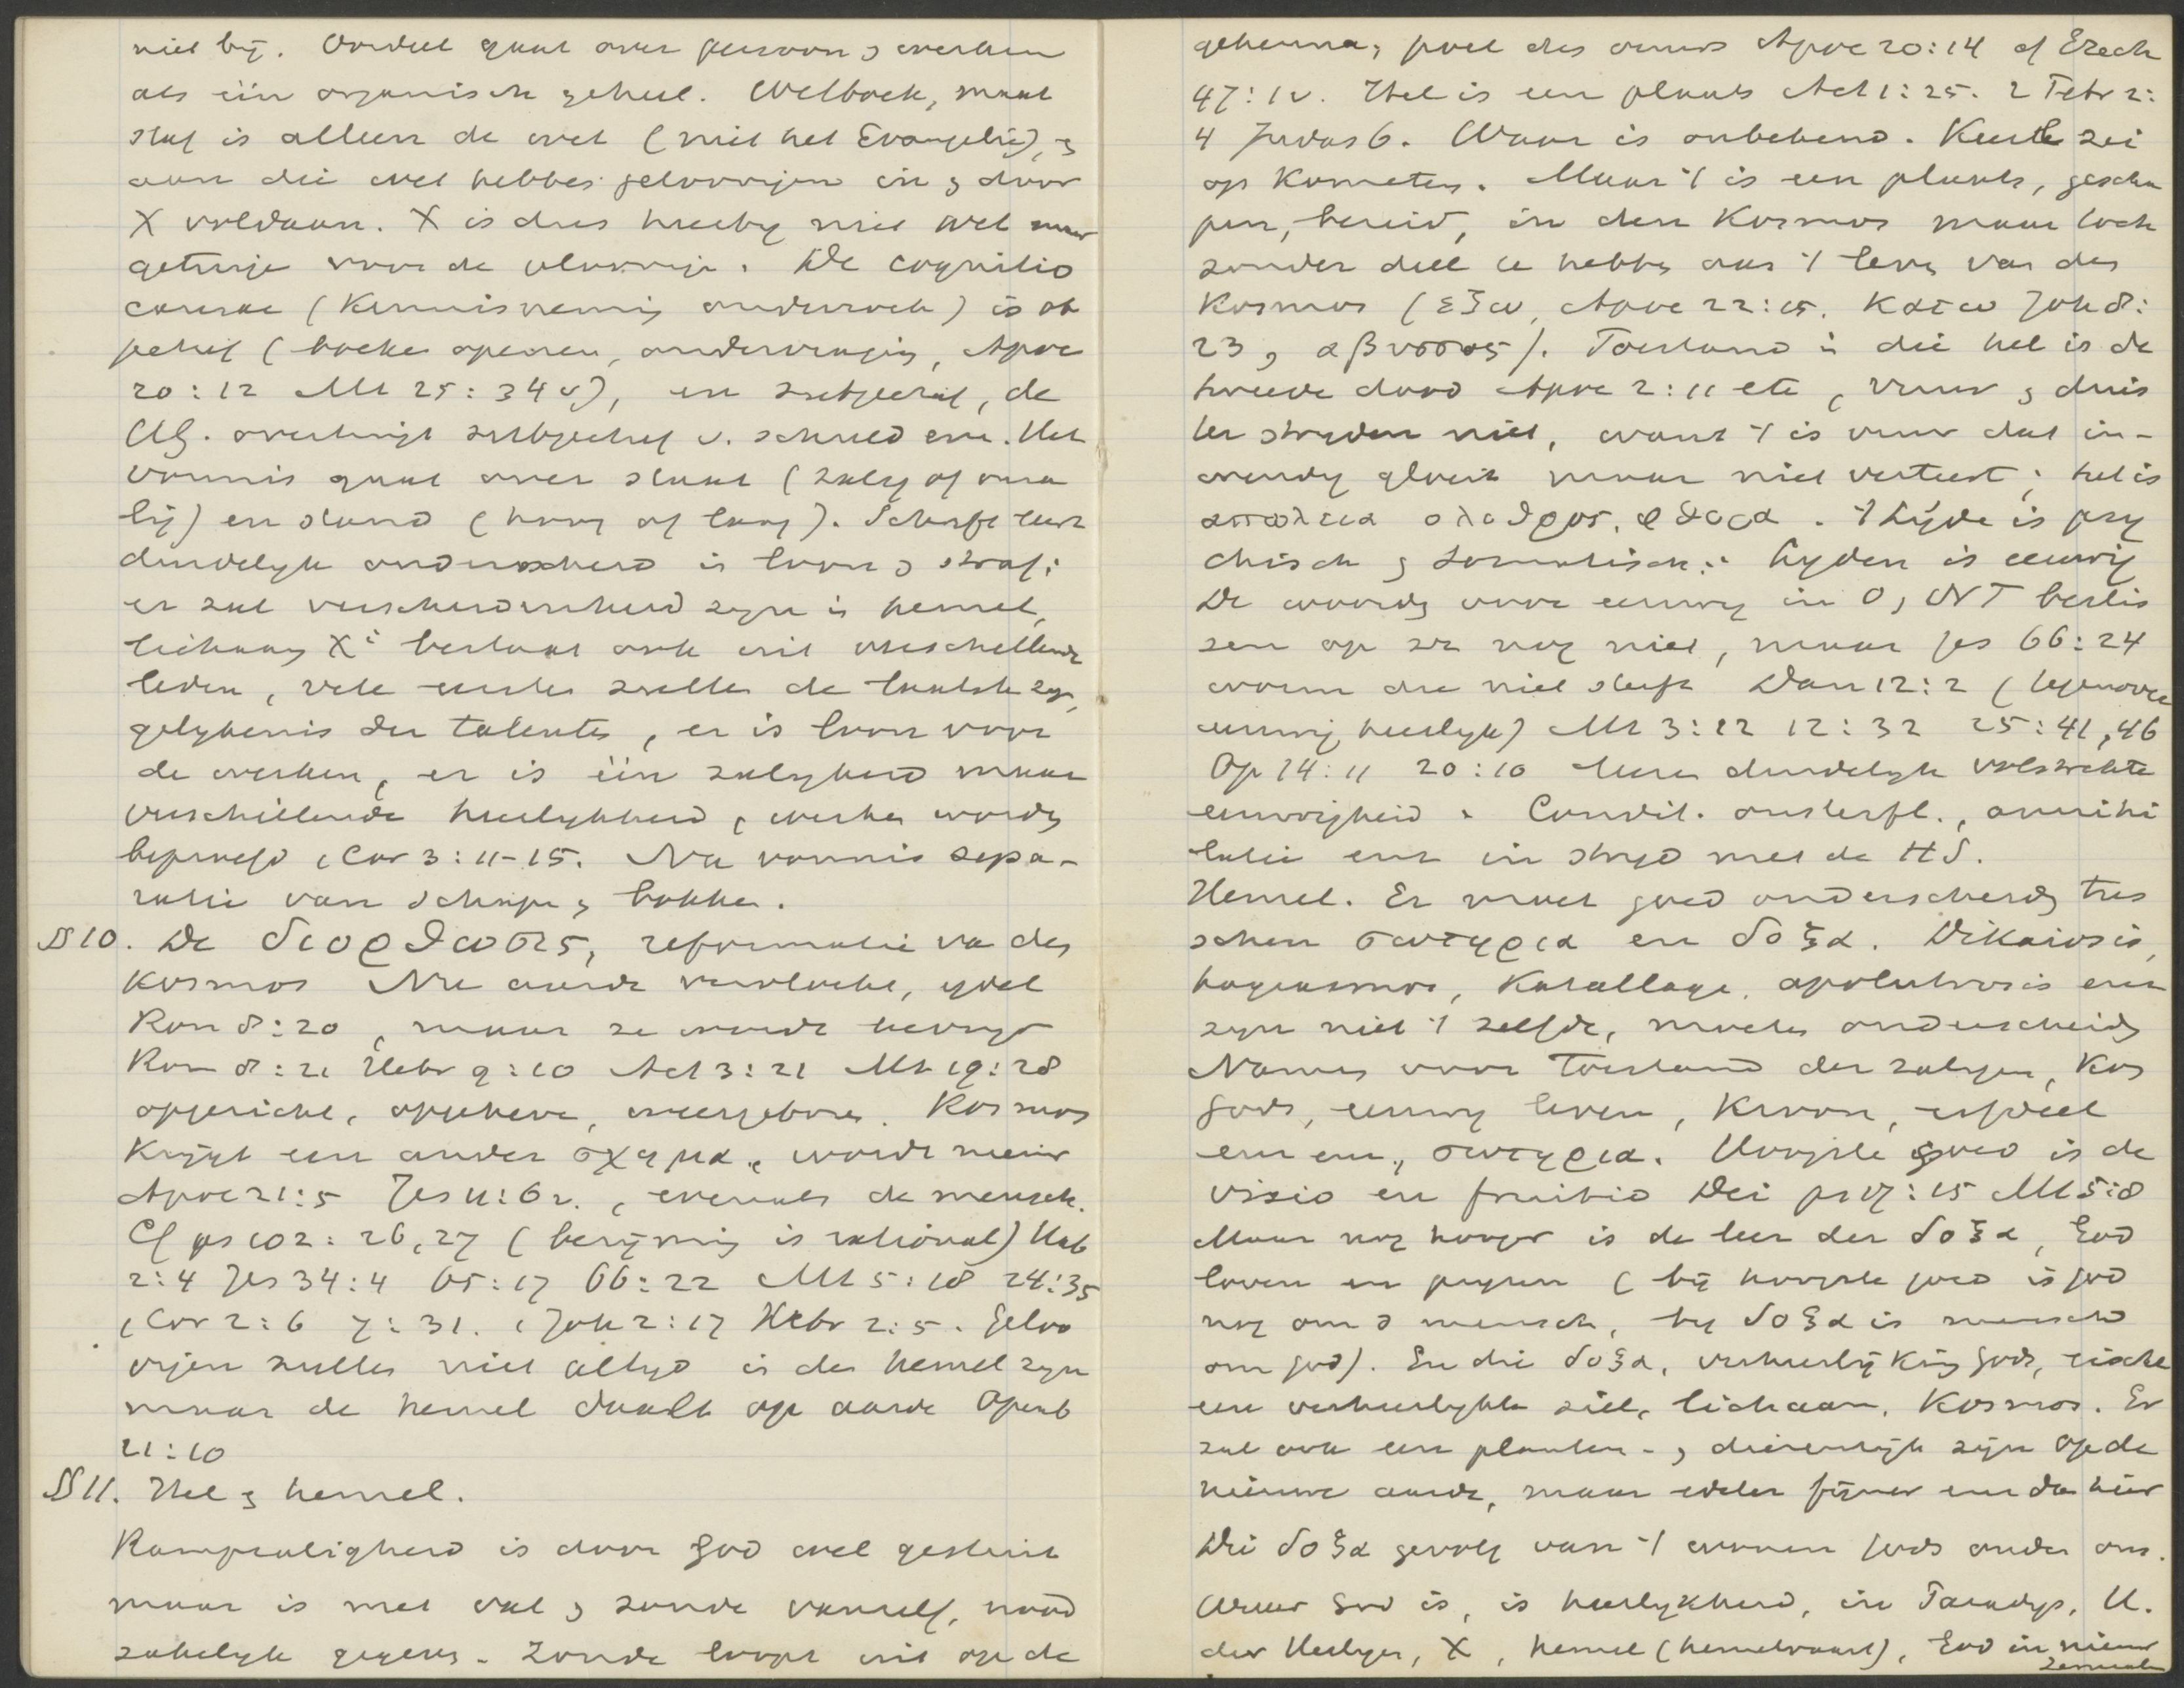 niet bij. Oordeel gaat over persoon & werken
als één organisch geheel. Wetboek, maat
staf is alleen de wet (niet het Evangelie), &
aan die wet hebben geloovigen in & door
X voldaan. X is dus hierbij niet wet maar
getuige voor de geloovige. De cognitio
causae (Kennisneming onderzoek) is ob
jectief (boeken openen, ondervraging, Apoc
20:12 Mt 25:34 v), en subjectief, de
HG. overtuigt subjectief v. schuld enz. Het
vonnis gaat over staat (zalig of onza
lig) en stand (hoog of laag). Schrift leert
duidelijk onderscheid in loon & straf:
er zal verscheidenheid zijn in hemel,
lichaam Xi bestaat ook uit verschillende
leden, vele eersten zullen de laatste zijn,
gelijkenis der talenten, er is loon voor
de werken, er is één zaligheid maar
verschillende heerlijkheid, werken worden
beproefd 1 Cor 3:11-15. Na vonnis sepa-
ratie van schapen & bokken.
§ 10. De διορθωσις, reformatie van den
Kosmos Nu aarde vervloekt, ijdel
Rom 8:20, maar ze wordt bevrijd
Rom 8:21 Hebr 9:10 Act 3:21 Mt 19:28
opgericht, opgeheven, weergeboren. Kosmos
krijgt een ander σχημα, wordt nieuw
Apoc 21:5 Jes 11:6v., evenals de mensch.
Cf ps 102:26,27 (berijming is rational) Hab
2:4 Jes 34:4 65:17 66:22 Mt 5:18 24:35
1 Cor 2:6 7:31. 1 Joh 2:17 Hebr 2:5. Geloo
vigen zullen niet altijd in den hemel zijn
maar de hemel daalt op aarde Openb
21:10
§ 11. Hel & hemel.
Rampzaligheid is door God wel gesteld
maar is met val & zonde vanzelf, nood
zakelijk gegeven. Zonde loopt uit op de
gehenna, poel des vuurs Apoc 20:14 cf Ezech
47:1v. Hel is een plaats Act 1:25. 2 Petr 2:
4 Judas 6. Waar is onbekend. Keerl zei
op Kometen. Maar 't is een plaats, gescha
pen, bereid, in den Kosmos maar toch
zonder deel te hebben aan 't leven van den
Kosmos (εξω, Apoc 22:15. Κατω Joh 8:
23, αβυσσος). Toestand in die hel is de
tweede dood Apoc 2:11 etc, vuur & duis
ter strijden niet, want 't is vuur dat in-
wendig gloeit maar niet verteert; het is
απωλεια ολεθρος, φθορα. 't Lijden is psy
chisch & somatisch: lijden is eeuwig
De woorden voor eeuwig in O & NT beslis
sen op zz nog niet, maar Jes 66:24
worm die niet sterft Dan 12:2 (tegenover
eeuwig heerlijk) Mt 3:12 12:32 25:41,46
Op 14:11 20:10 leeren duidelijk volstrekte
eeuwigheid. Condit. onsterfl., annihi
latie enz in strijd met de HS.
Hemel. Er moet goed onderscheiden tus
schen σωτηρια en δοξα. Dikaiosis,
hagiasmos, Katallage, apolutrosis enz
zijn niet 't zelfde, moeten onderscheiden
Namen voor toestand der zaligen, Kon
gods, eeuwig leven, Kroon, erfdeel
enz enz., σωτηρια. Hoogste goed is de
visio en fruitio Dei ps 17:15 Mt 5:8
Maar nog hooger is de leer der δοξα, God
loven en prijzen (bij hoogste goed is god
nog om d mensch, bij δοξα is mensch
om god). En die δοξα, verheerlijking gods, eischt
een verheerlijkte ziel, lichaam, Kosmos. Er
zal ook een planten- & dierenrijk zijn op de
nieuwe aarde, maar edeler fijner enz dan hier
Die δοξα gevolg van 't wonen gods onder ons.
Waar God is, is heerlijkheid, in Paradijs, H.
der Heiligen, X, hemel (hemelvaart), God in nieuw
Jerusalem